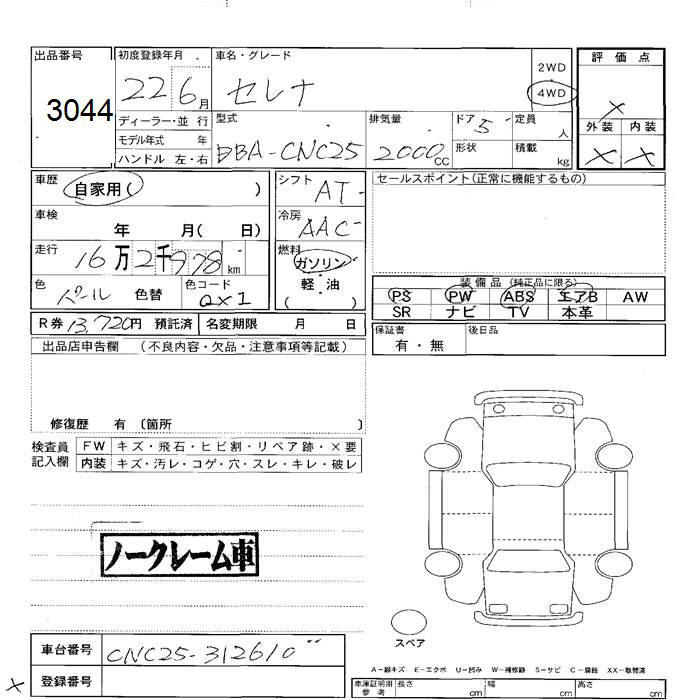 出品番号 初度登録年月 車名・グレード 評価点
3044 22 6月 セレナ 2WD 4WD ×
ディーラー・並行 型式 排気量 ドア 5 定員 人 外装 内装
モデル年式 年 DBA-CNC25 2000cc 形状 積載 kg × ×
ハンドル 左・右
車歴 自家用( ) シフト AT セールスポイント(正常に機能するもの)
車検 年 月( 日) 冷房 AAC
走行 16万2千978km 燃料 ガソリン
軽・油
( )
色 パール 色替 色コード QX1
装備品(純正品に限る)
PS PW ABS エアB AW
SR ナビ TV 本革
R券 13,720円 預託済 名変期限 月 日
保証書 有・無 後日品
出品店申告欄 (不良内容・欠品・注意事項等記載)
修復歴 有 〔箇所 〕
検査員 FW キズ・飛石・ヒビ割・リペア跡・×要
記入欄 内装 キズ・汚レ・コゲ・穴・スレ・キレ・破レ
ノークレーム車
スペア
車台番号 CNC25-312610
× 登録番号
A-線キズ E-エクボ U-凹み W-補修跡 S-サビ C-腐蝕 XX-取替済
車庫証明用参考 長さ cm 幅 cm 高さ cm